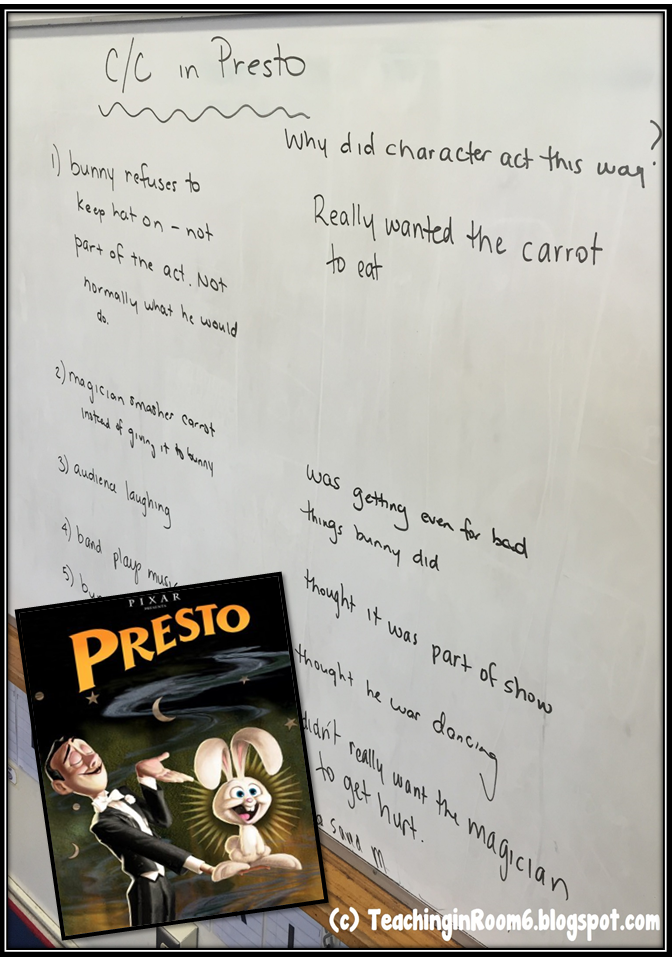 C/C in Presto
Why did character act this way?
1) bunny refuses to
keep hat on – not
part of the act. Not
normally what he would
do.
Really wanted the carrot
to eat
2) magician smashes carrot
instead of giving it to bunny
was getting even for bad
things bunny did
3) audience laughing
thought it was part of show
4) band plays music
thought he was dancing
5)
didn't really want the magician
to get hurt.
PIXAR
PRESENTS
PRESTO
(c) TeachinginRoom6.blogspot.com